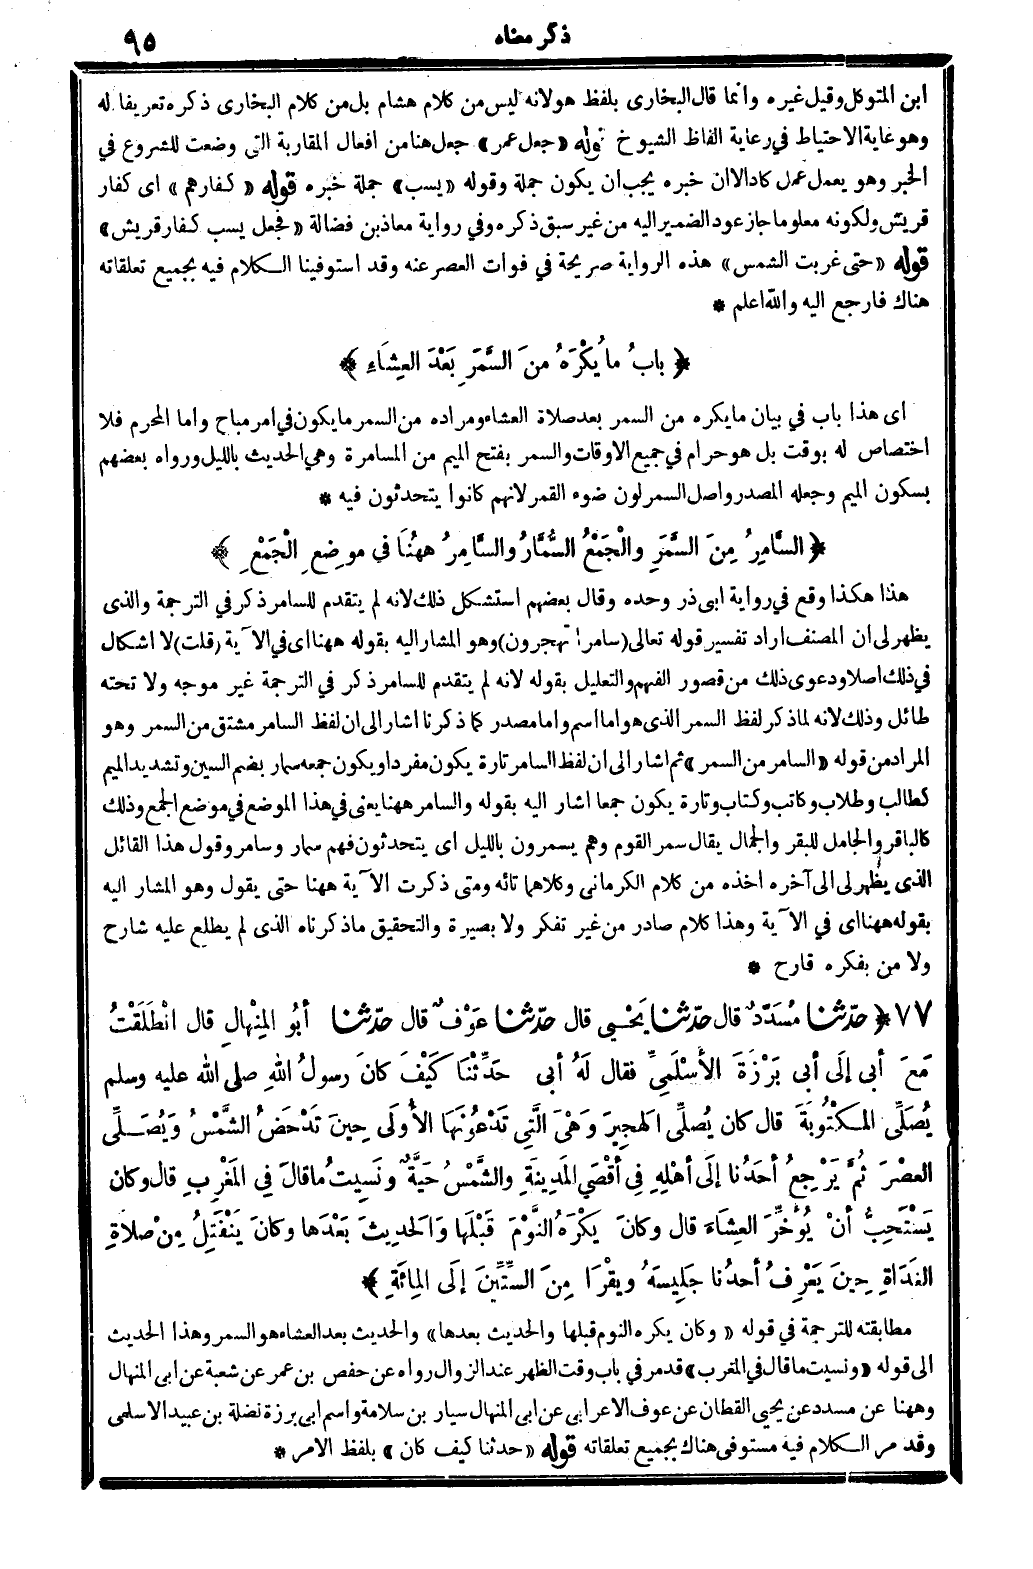 ذكر معناه
٩٥
ابن المتوكل وقيل غيره وانما قال البخارى بلفظ هو لانه ليس من كلام هشام بل من كلام البخارى ذكره تعريفا له
وهو غاية الاحتياط في رعاية الفاظ الشيوخ قوله «جعل عمر» جعل هنا من افعال المقاربة التى وضعت للشروع في
الخبر وهو يعمل عمل كاد الا ان خبره يجب ان يكون جملة وقوله «يسب» جملة خبره قوله «كفارهم» اى كفار
قريش ولكونه معلوما جاز عود الضمير اليه من غير سبق ذكره وفي رواية معاذ بن فضالة «فجعل يسب كفار قريش»
قوله «حتى غربت الشمس» هذه الرواية صريحة في فوات العصر عنه وقد استوفينا الكلام فيه بجميع تعلقاته
هناك فارجع اليه والله اعلم *
﴿ بابُ ما يُكْرَهُ منَ السَّمَرِ بَعْدَ العِشَاءِ ﴾
اى هذا باب في بيان ما يكره من السمر بعد صلاة العشاء ومراده من السمر ما يكون في امر مباح واما المحرم فلا
اختصاص له بوقت بل هو حرام في جميع الاوقات والسمر بفتح الميم من المسامرة وهي الحديث بالليل ورواه بعضهم
بسكون الميم وجعله المصدر واصل السمر لون ضوء القمر لانهم كانوا يتحدثون فيه *
﴿ السَّامِرُ مِنَ السَّمَرِ والْجَمْعُ السُّمَّارُ والسَّامِرُ هٰهُنَا في موضِعِ الْجَمْعِ ﴾
هذا هكذا وقع في رواية ابى ذر وحده وقال بعضهم استشكل ذلك لانه لم يتقدم للسامر ذكر في الترجمة والذى
يظهر لى ان المصنف اراد تفسير قوله تعالى (سامرا تهجرون) وهو المشار اليه بقوله ههنا اى في الآية (قلت) لا اشكال
في ذلك اصلا ودعوى ذلك من قصور الفهم والتعليل بقوله لانه لم يتقدم للسامر ذكر في الترجمة غير موجه ولا تحته
طائل وذلك لانه لما ذكر لفظ السمر الذى هو اما اسم واما مصدر كما ذكرنا اشار الى ان لفظ السامر مشتق من السمر وهو
المراد من قوله «السامر من السمر» ثم اشار الى ان لفظ السامر تارة يكون مفردا ويكون جمعه سمار بضم السين وتشديد الميم
كطالب وطلاب وكاتب وكتاب وتارة يكون جمعا اشار اليه بقوله والسامر ههنا يعنى في هذا الموضع في موضع الجمع وذلك
كالباقر والجامل للبقر والجمال يقال سمر القوم وهم يسمرون بالليل اى يتحدثون فهم سمار وسامر وقول هذا القائل
الذى يظهر لى الى آخره اخذه من كلام الكرمانى وكلاهما تائه ومتى ذكرت الآية ههنا حتى يقول وهو المشار اليه
بقوله ههنا اى في الآية وهذا كلام صادر من غير تفكر ولا بصيرة والتحقيق ما ذكرناه الذى لم يطلع عليه شارح
ولا من بفكره قارح *
٧٧ ﴿ حدّثنا مُسَدَّدٌ قال حدّثنا يَحْيى قال حدّثنا عَوْفٌ قال حدّثنا أبُو المِنْهالِ قال انْطَلَقْتُ
مَعَ أبى إلَى أبى بَرْزَةَ الأَسْلَمِيِّ فقال لَهُ أبى حَدِّثْنَا كَيْفَ كانَ رسولُ اللهِ صلى الله عليه وسلم
يُصَلِّى المَكْتُوبَةَ قال كان يُصلِّى الهَجِيرَ وَهْىَ الَّتِى تَدْعُونَهَا الأُولَى حِينَ تَدْحَضُ الشَّمْسُ وَيُصَلِّى
العصْرَ ثُمَّ يَرْجِعُ أحَدُنا إلَى أهْلِهِ فِى أقْصَى المَدِينَةِ والشَّمْسُ حَيَّةٌ ونَسِيتُ ما قالَ فِى المَغْرِبِ قال وكان
يَسْتَحِبُّ أنْ يُؤَخِّرَ العِشَاءَ قال وكانَ يَكْرَهُ النَّوْمَ قَبْلَها وَالحَدِيثَ بَعْدَها وكانَ يَنْفَتِلُ مِنْ صَلاَةِ
الغَدَاةِ حِينَ يَعْرِفُ أحدُنا جَلِيسَهُ ويقْرَا مِنَ السِّتِّينَ إلَى المِائَةِ ﴾
مطابقته للترجمة في قوله «وكان يكره النوم قبلها والحديث بعدها» والحديث بعد العشاء هو السمر وهذا الحديث
الى قوله «ونسيت ما قال في المغرب» قد مر في باب وقت الظهر عند الزوال رواه عن حفص بن عمر عن شعبة عن ابى المنهال
وههنا عن مسدد عن يحيى القطان عن عوف الاعرابى عن ابى المنهال سيار بن سلامة واسم ابى برزة نضلة بن عبيد الاسلمى
وقد مر الكلام فيه مستوفى هناك بجميع تعلقاته قوله «حدثنا كيف كان» بلفظ الامر *